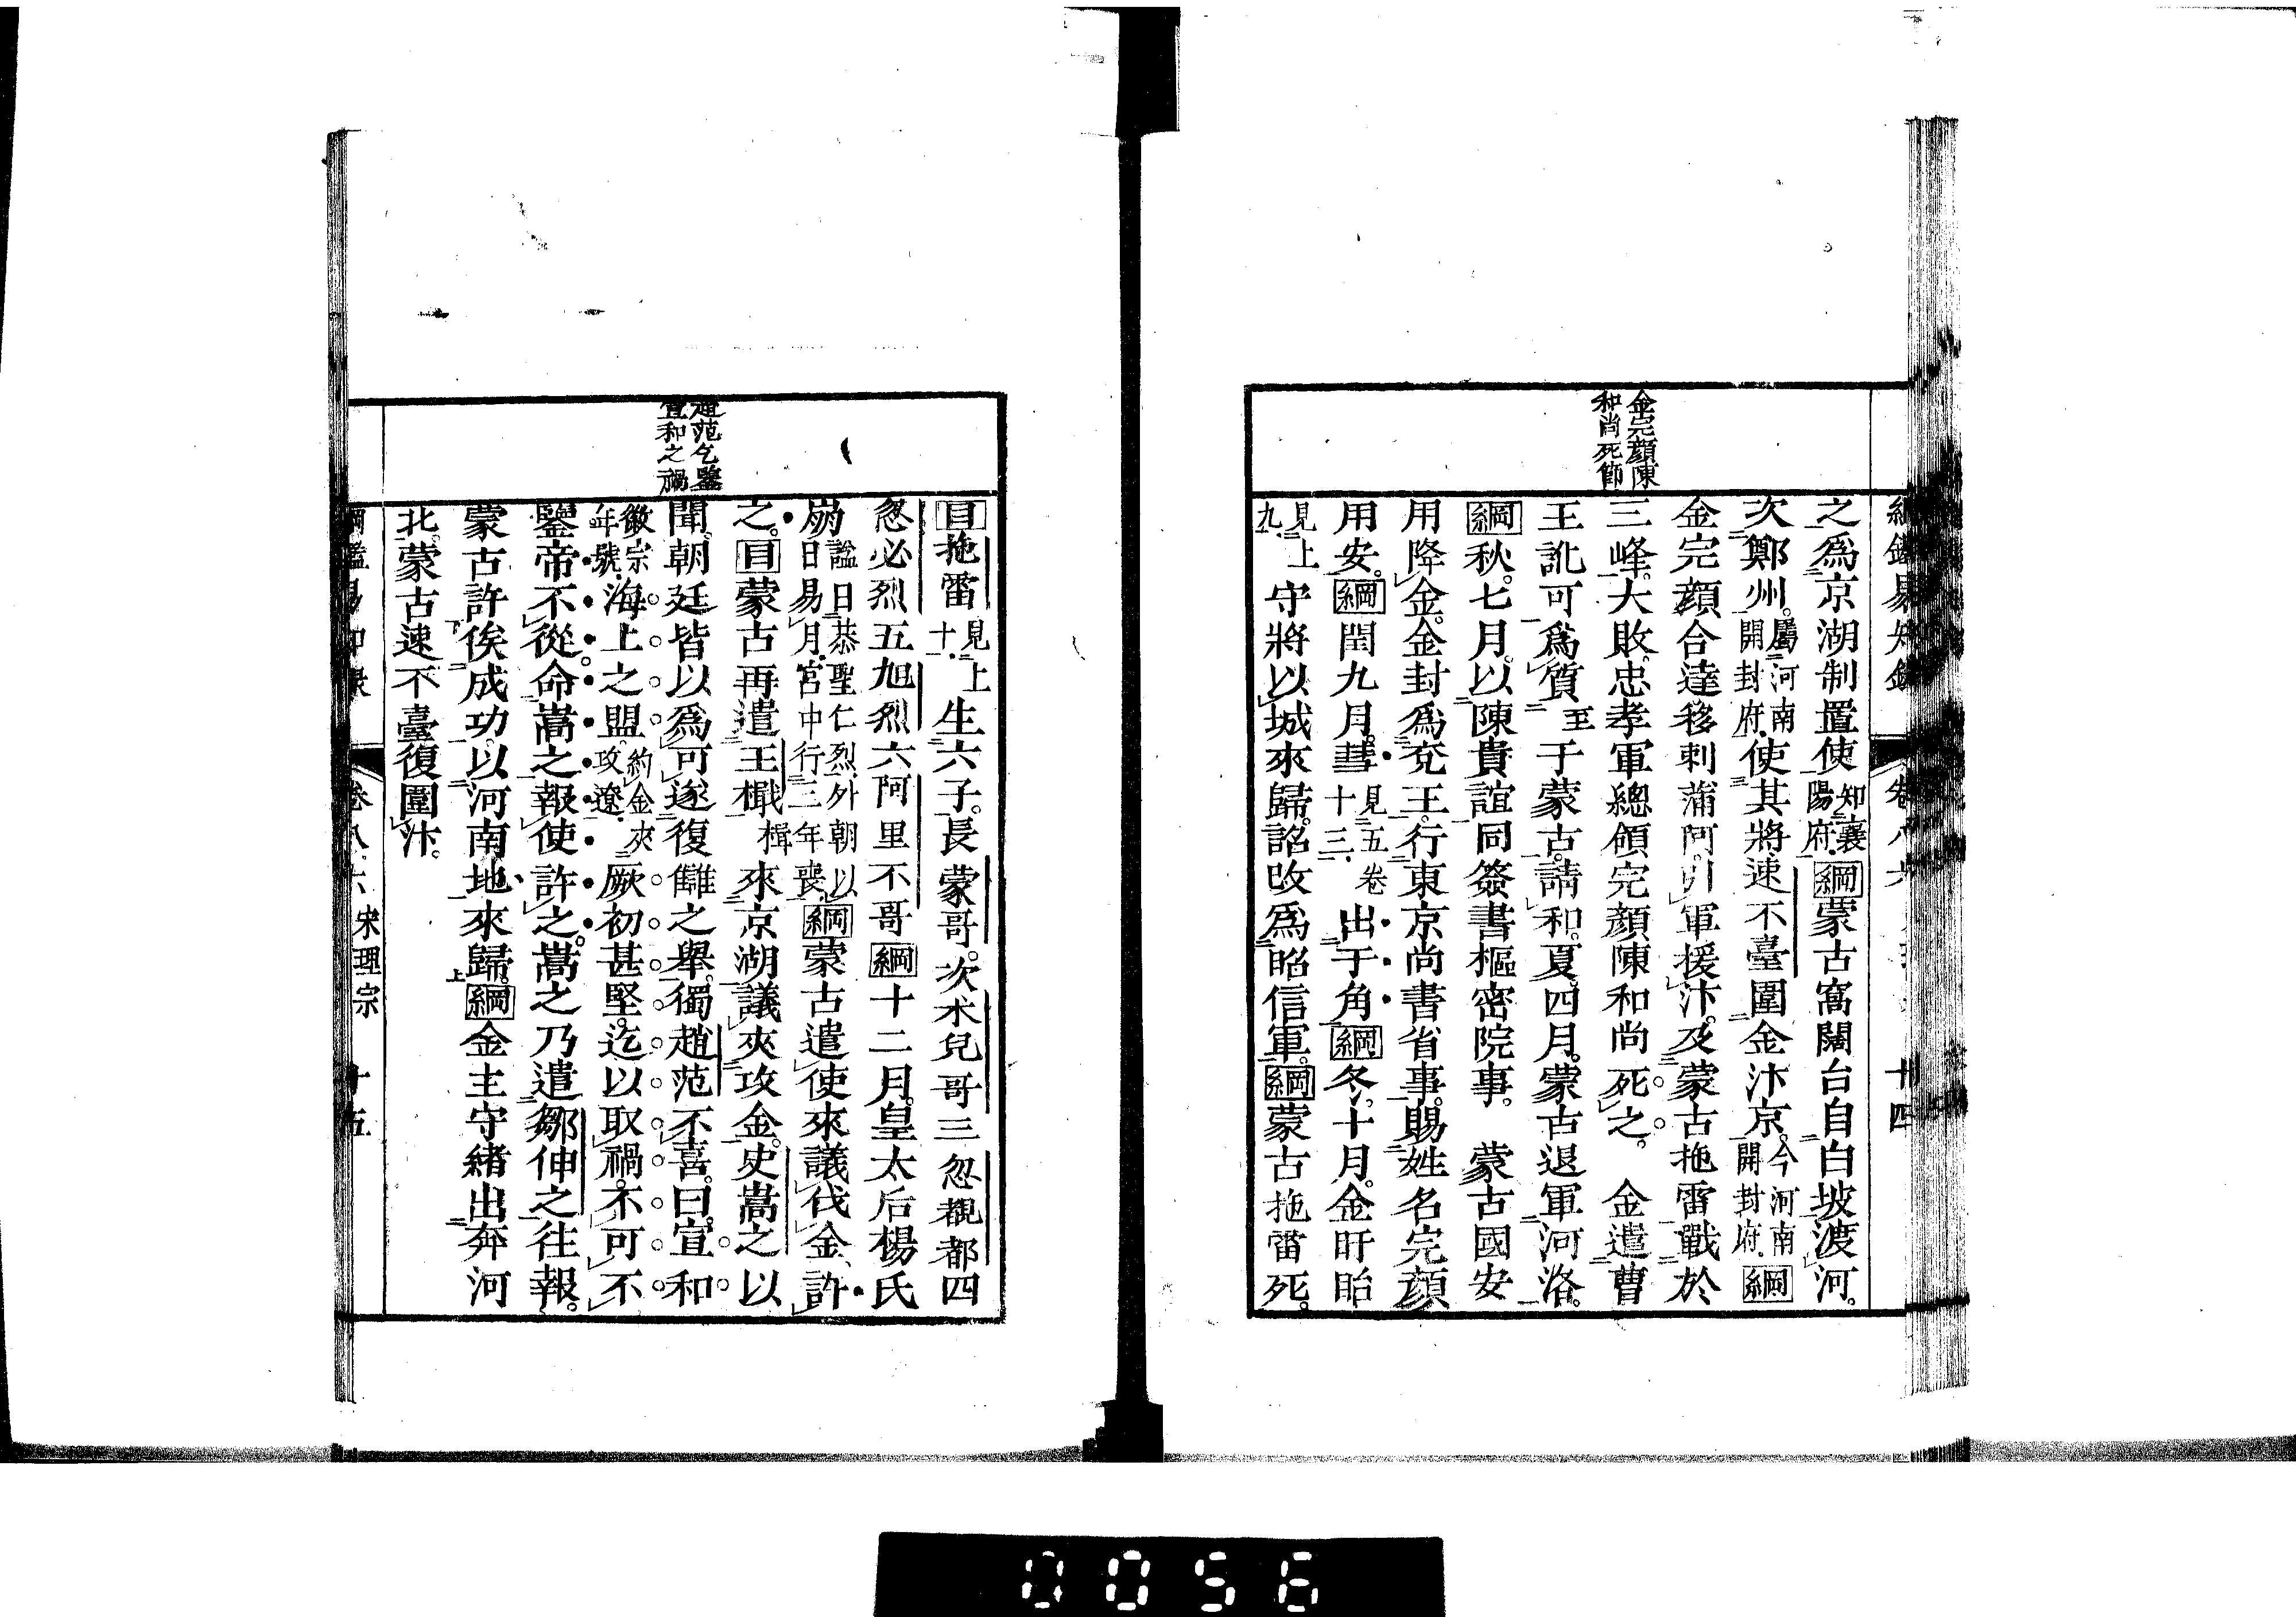 金完顔陳
和尚死節
之爲京湖制置使知襄陽府綱蒙古窩闊台自白坡渡河。
次鄭州。屬河南開封府使其將速不臺圍金汴京。今河南開封府綱
金完顔合達移剌蒲阿。引軍援汴。及蒙古拖雷戰於
三峰。大敗。忠孝軍總領完顔陳和尚死之。 金遣曹
王訛可爲質至于蒙古。請和。夏。四月。蒙古退軍河洛。
綱秋。七月。以陳貴誼同簽書樞密院事。 蒙古國安
用降金。金封爲兗王。行東京尚書省事。賜姓名完顔
用安。綱閏九月。彗見五卷十三出于角綱冬。十月。金盱眙
見上九守將以城來歸。詔改爲昭信軍。綱蒙古拖雷死。
趙范乞鑒
宣和之禍
目拖雷見上十一生六子。長蒙哥。次朮兒哥三忽覩都四
忽必烈五旭烈六阿里不哥綱十二月。皇太后楊氏
崩謚曰恭聖仁烈外朝以日易月宮中行三年喪綱蒙古遣使來議伐金許
之。目蒙古再遣王檝楫來京湖議夾攻金。史嵩之以
聞。朝廷皆以爲可遂復讎之舉。獨趙范不喜。曰。宣和
徽宗年號海上之盟。約金夾攻遼厥初甚堅。迄以取禍。不可不
鑒帝不從。命嵩之報使許之。嵩之乃遣鄒伸之往報。
蒙古許俟成功。以河南地來歸。綱金主守緒出奔河
北。蒙古速不臺復圍汴。
卷八六 宋理宗 十五